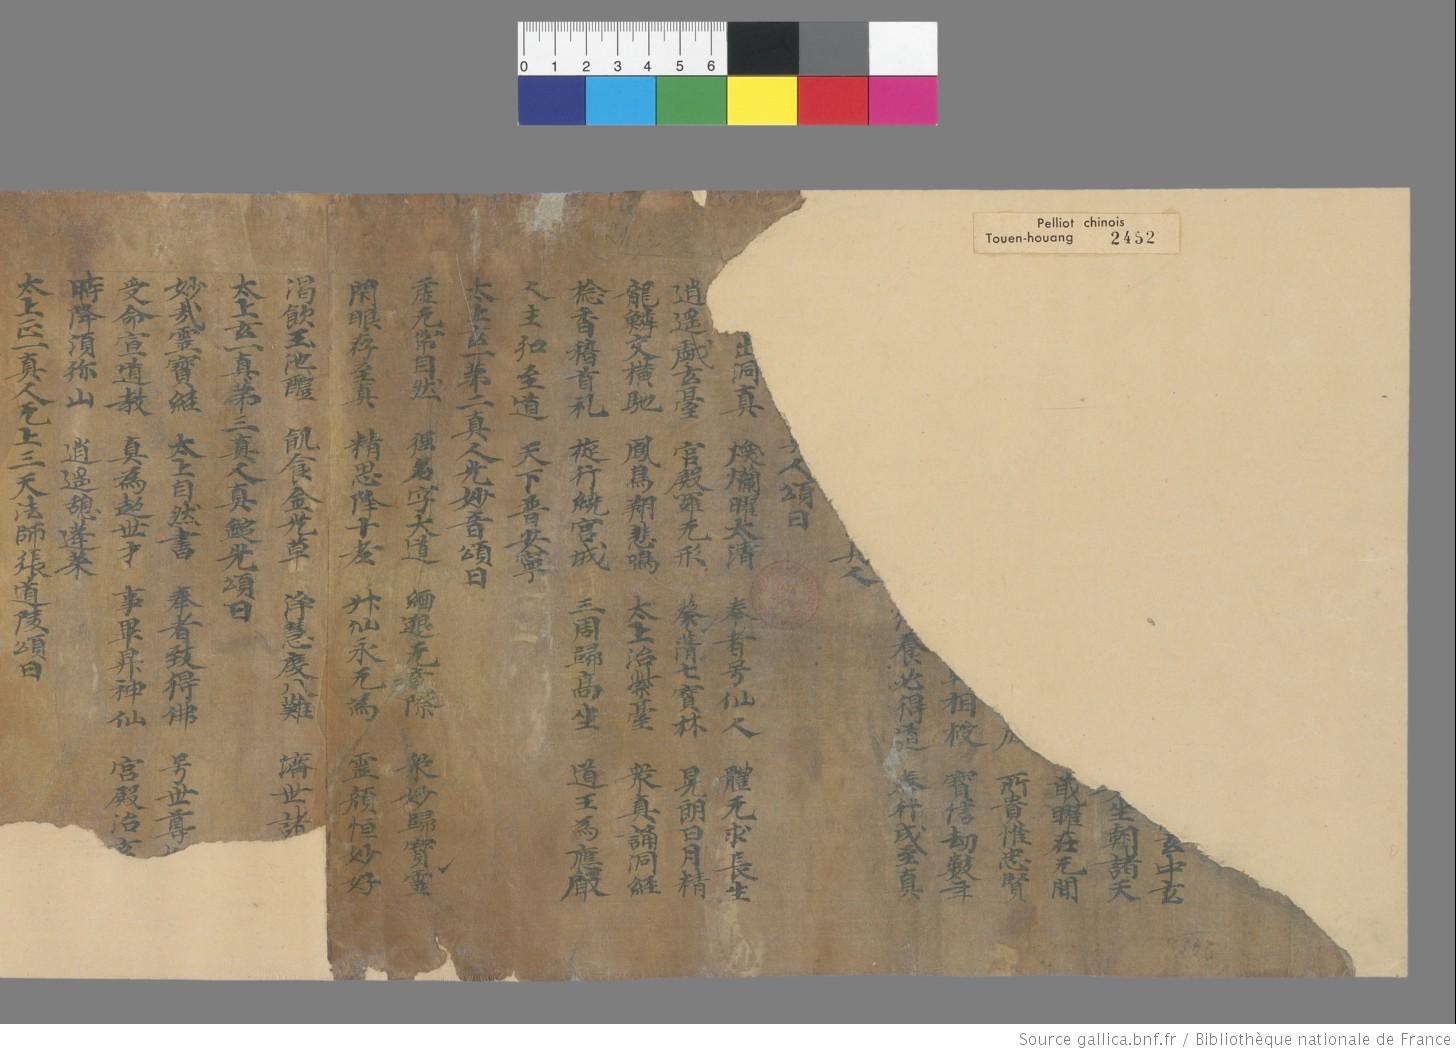 0 1 2 3 4 5 6
Pelliot chinois
Touen-houang 2452
玄中玄
生朝諸天
或躍在无間
所貴惟忠賢
相授 寶信劫數年
養必得道 奉行成至真
真人
人頌曰
出洞真 煥爛曜太清 奉者号仙人 體无永長生
逍遥戲玄臺 宫殿羅无形 蔡蒨七寶林 晃朗日月精
龍鱗交橫馳 鳳鳥翔悲鳴 太上治紫臺 衆真誦洞經
捻香稽首礼 旋行繞宫城 三周歸高坐 道王爲應聲
人主弘至道 天下普安寧
太上玄一第二真人光妙音頌曰
虛无常自然 強名字大道 緬邈无音際 衆妙歸寶靈
閑眼存至真 精思降十老 升仙永无爲 靈顔恒妙好
渴飲玉池醴 飢食金光草 浄慧度八難 濟世諸
太上玄一真第三真人真鯢光頌曰
妙哉靈寶經 太上自然書 奉者致得佛 号世尊
受命宣道教 真爲超世才 事畢昇神仙 宫殿治玄
時降須弥山 逍遥憩蓬萊
太上正一真人无上三天法師張道陵頌曰
Source gallica.bnf.fr / Bibliothèque nationale de France